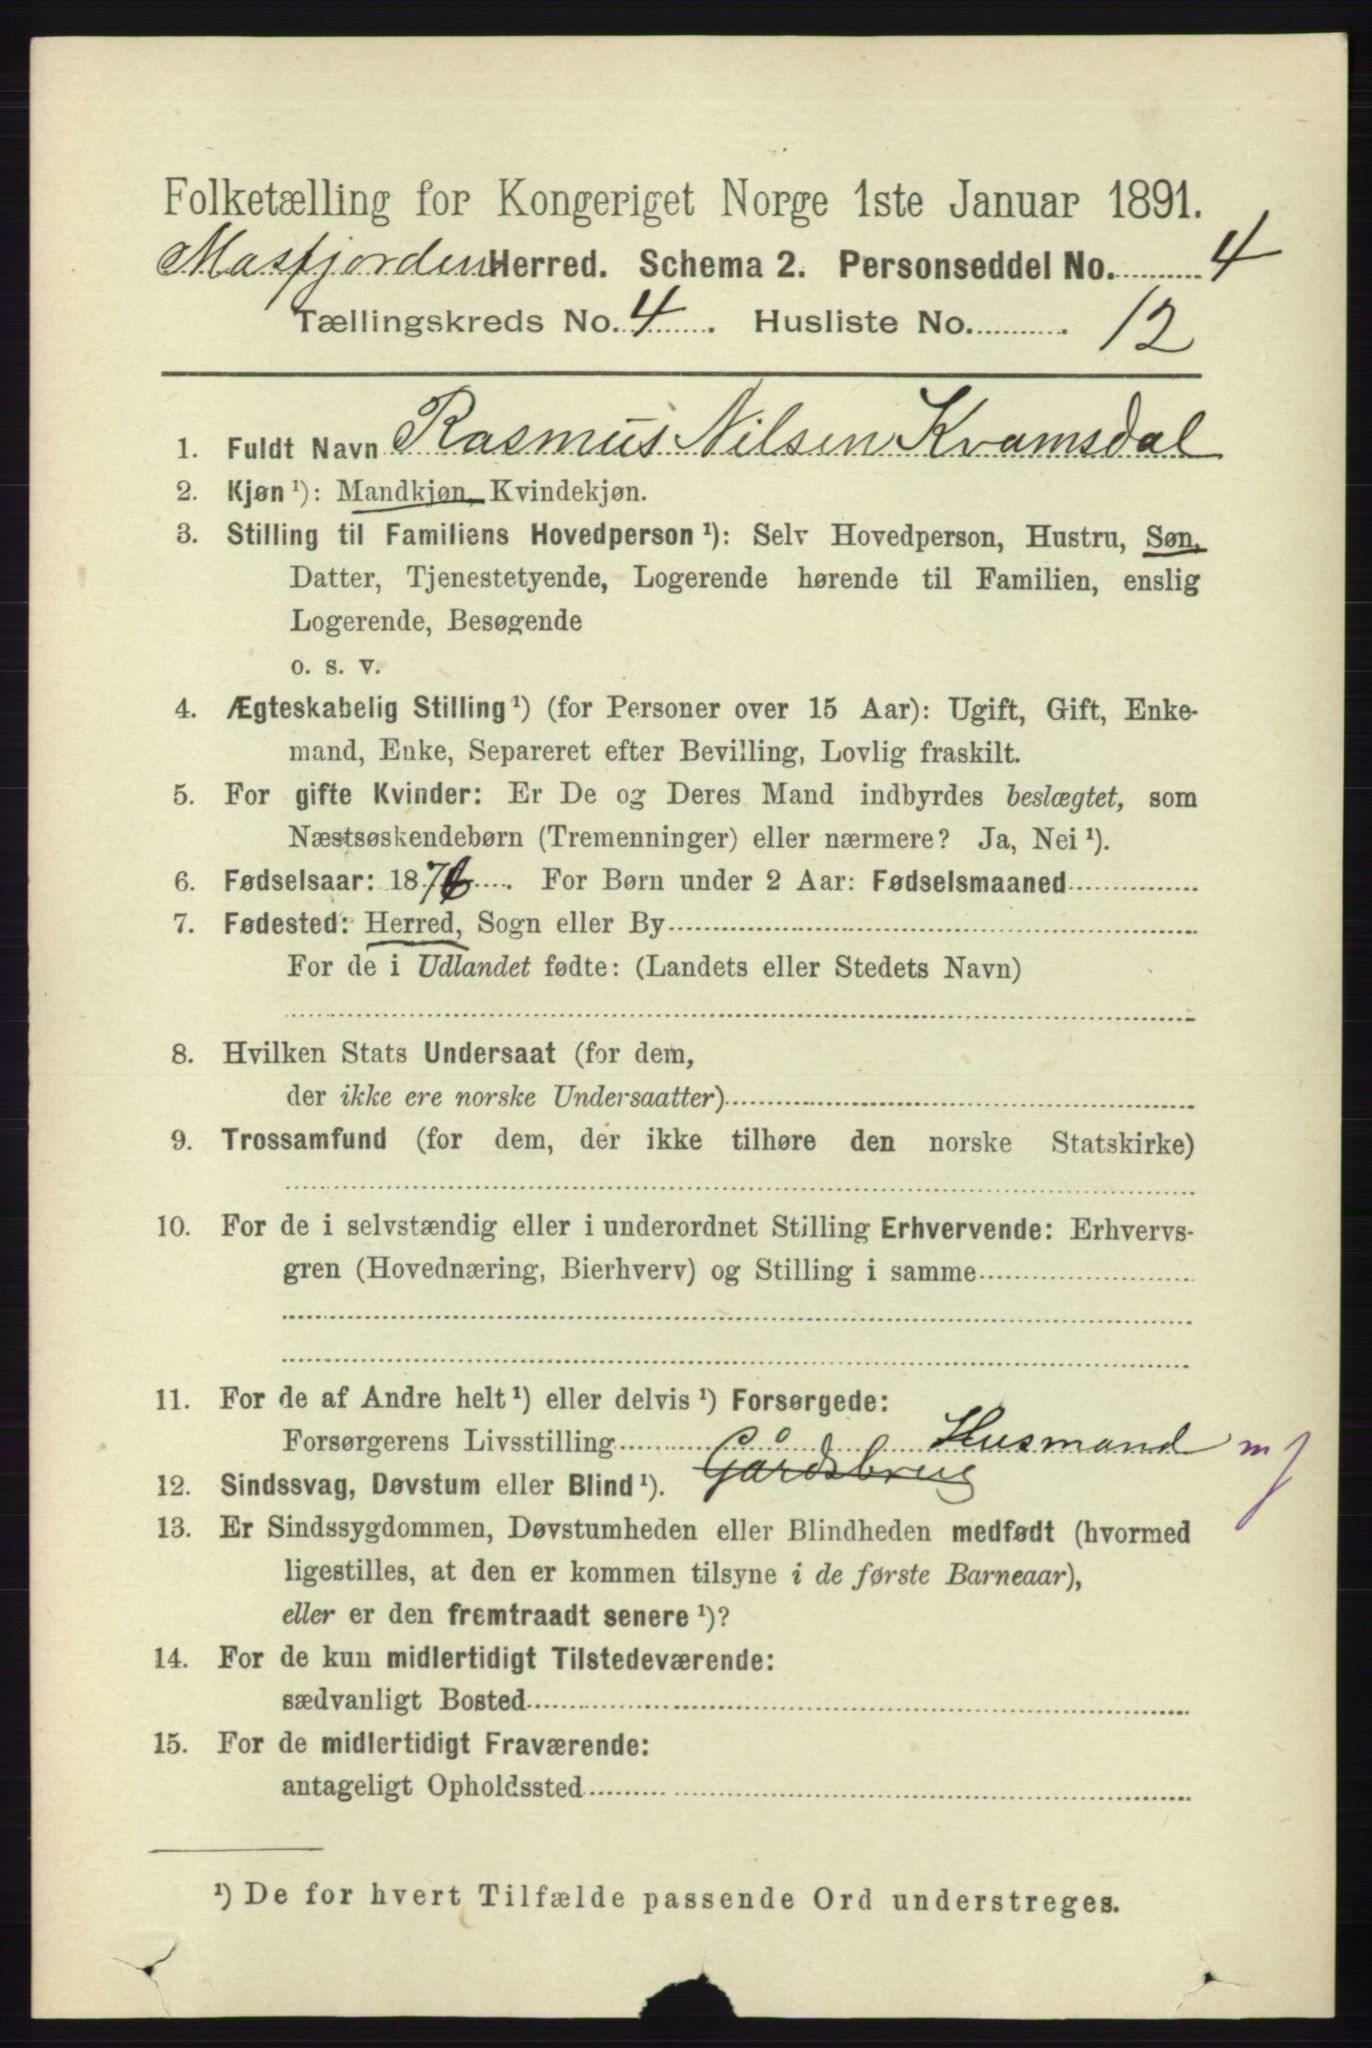 Folketælling for Kongeriget Norge 1ste Januar 1891.
Masfjorden Herred. Schema 2. Personseddel No. 4
Tællingskreds No. 4. Husliste No. 12
1. Fuldt Navn Rasmus Nilsen Kvamsdal
2. Kjøn ¹): Mandkjøn, Kvindekjøn.
3. Stilling til Familiens Hovedperson ¹): Selv Hovedperson, Hustru, Søn,
Datter, Tjenestetyende, Logerende hørende til Familien, enslig
Logerende, Besøgende
o. s. v.
4. Ægteskabelig Stilling ¹) (for Personer over 15 Aar): Ugift, Gift, Enke-
mand, Enke, Separeret efter Bevilling, Lovlig fraskilt.
5. For gifte Kvinder: Er De og Deres Mand indbyrdes beslægtet, som
Næstsøskendebørn (Tremenninger) eller nærmere? Ja, Nei ¹).
6. Fødselsaar: 1876. For Børn under 2 Aar: Fødselsmaaned
7. Fødested: Herred, Sogn eller By
For de i Udlandet fødte: (Landets eller Stedets Navn)
8. Hvilken Stats Undersaat (for dem,
der ikke ere norske Undersaatter)
9. Trossamfund (for dem, der ikke tilhøre den norske Statskirke)
10. For de i selvstændig eller i underordnet Stilling Erhvervende: Erhvervs-
gren (Hovednæring, Bierhverv) og Stilling i samme
11. For de af Andre helt ¹) eller delvis ¹) Forsørgede:
Forsørgerens Livsstilling Husmand mj
Gårdsbrug
12. Sindssvag, Døvstum eller Blind ¹).
13. Er Sindssygdommen, Døvstumheden eller Blindheden medfødt (hvormed
ligestilles, at den er kommen tilsyne i de første Barneaar),
eller er den fremtraadt senere ¹)?
14. For de kun midlertidigt Tilstedeværende:
sædvanligt Bosted
15. For de midlertidigt Fraværende:
antageligt Opholdssted
¹) De for hvert Tilfælde passende Ord understreges.